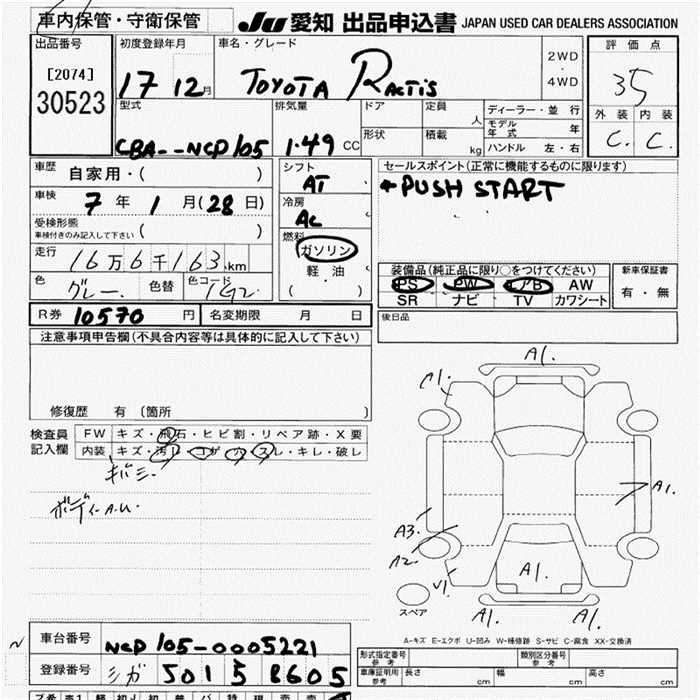 車内保管・守衛保管
JU 愛知 出品申込書 JAPAN USED CAR DEALERS ASSOCIATION
出品番号 初度登録年月 車名・グレード 2WD・4WD 評価点
[2074]
30523
17 12月 TOYOTA RACTIS 35
型式 排気量 ドア 定員 人 ディーラー・並行 外装 内装
モデル年式 年
CBA--NCP105 1.49 CC 形状 積載 kg ハンドル 左・右 C. C.
車歴 自家用・( ) シフト AT セールスポイント(正常に機能するものに限ります)
車検 7年 1月(28日) 冷房 AC *PUSH START
受検形態 ( ) 燃料
車検付きのみ記入して下さい
ガソリン
走行 16万6千163km 軽油 装備品(純正品に限り○をつけてください) 新車保証書
色 グレー. 色替 色コード ( ) PS PW エアB AW 有・無
SR ナビ TV カワシート
R券 10570円 名変期限 月 日 後日品
注意事項申告欄(不具合内容等は具体的に記入して下さい)
修復歴 有 (箇所 )
検査員記入欄 FW キズ・飛石・ヒビ割・リペア跡・X要
内装 キズ・汚レ・コゲ・穴・スレ・キレ・破レ
ボディーA.U.
A1.
A1.
A3.
A2.
A1.
V1.
A1.
A1.
スペア
A-キズ E-エクボ U-凹み W-補修跡 S-サビ C-腐食 XX-交換済
車台番号 NCP105-0005221
登録番号 シガ 501 5 8605
形式指定番号 参考 類別区分番号 参考
車庫証明用 参考 長さ cm 幅 cm 高さ cm